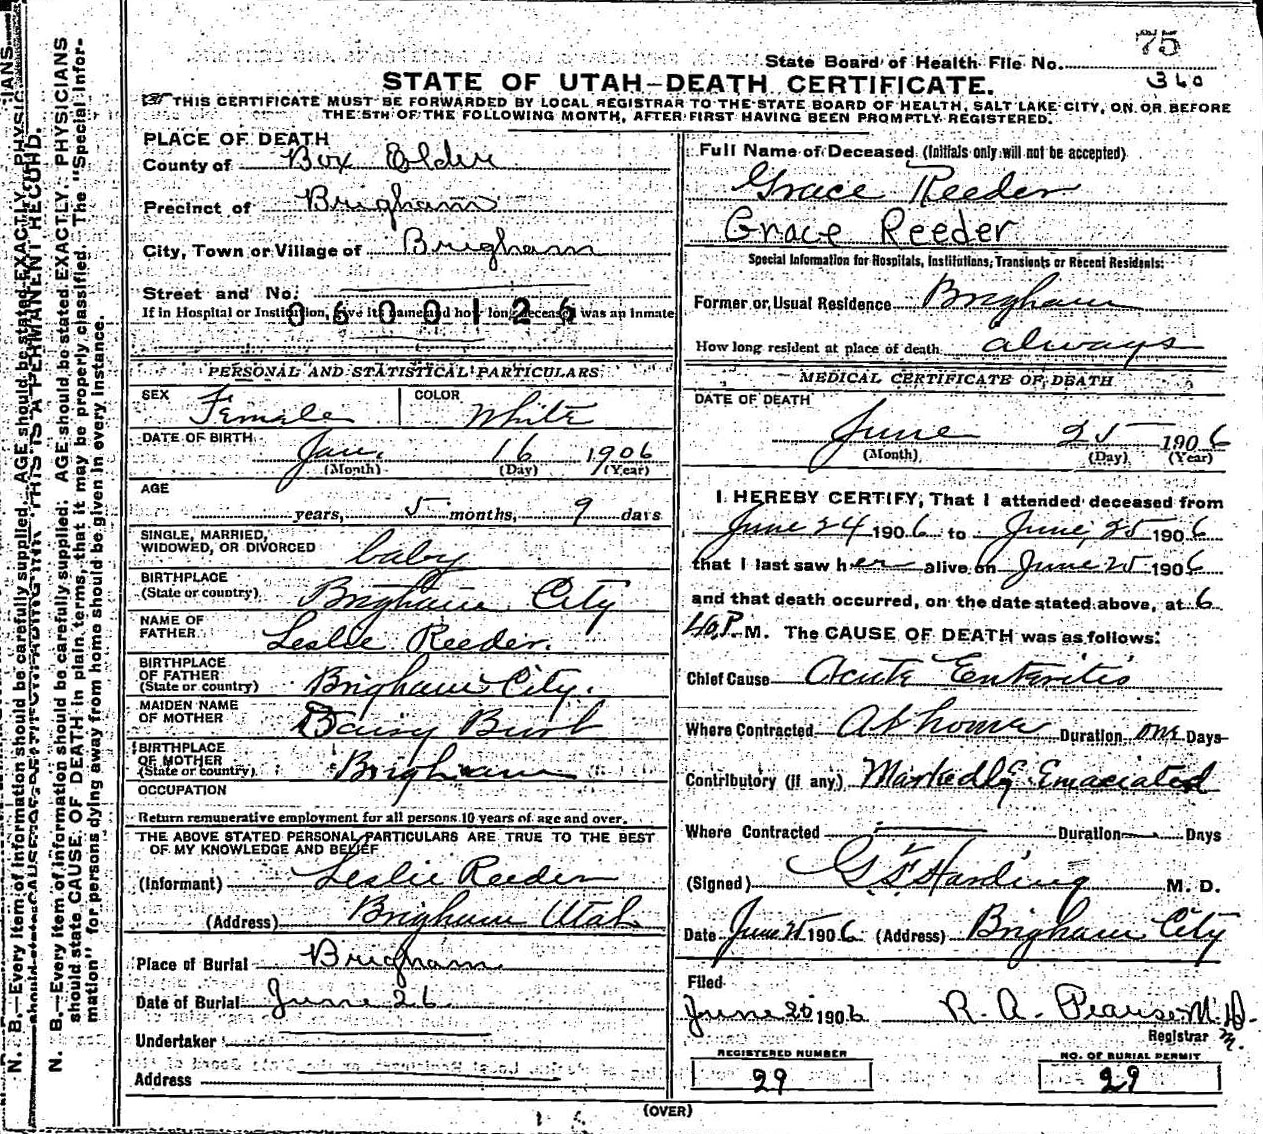 75
State Board of Health File No.
360
STATE OF UTAH–DEATH CERTIFICATE.
THIS CERTIFICATE MUST BE FORWARDED BY LOCAL REGISTRAR TO THE STATE BOARD OF HEALTH, SALT LAKE CITY, ON OR BEFORE
THE 5TH OF THE FOLLOWING MONTH, AFTER FIRST HAVING BEEN PROMPTLY REGISTERED.
PLACE OF DEATH
County of Box Elder
Precinct of Brigham
City, Town or Village of Brigham
Street and No.
If in Hospital or Institution, give its name and how long deceased was an inmate
0600126
PERSONAL AND STATISTICAL PARTICULARS
SEX Female COLOR White
DATE OF BIRTH Jan. 16 1906
(Month) (Day) (Year)
AGE
years, 5 months, 9 days
SINGLE, MARRIED,
WIDOWED, OR DIVORCED baby
BIRTHPLACE
(State or country) Brigham City
NAME OF
FATHER Leslie Reeder.
BIRTHPLACE
OF FATHER
(State or country) Brigham City.
MAIDEN NAME
OF MOTHER Daisy
BIRTHPLACE
OF MOTHER
(State or country) Brigham
OCCUPATION
Return remunerative employment for all persons 10 years of age and over.
THE ABOVE STATED PERSONAL PARTICULARS ARE TRUE TO THE BEST
OF MY KNOWLEDGE AND BELIEF
(Informant) Leslie Reeder
(Address) Brigham Utah
Place of Burial Brigham
Date of Burial June 26
Undertaker
Address
Full Name of Deceased (Initials only will not be accepted)
Grace Reeder
Grace Reeder
Special Information for Hospitals, Institutions, Transients or Recent Residents:
Former or Usual Residence Brigham
How long resident at place of death always
MEDICAL CERTIFICATE OF DEATH
DATE OF DEATH
June 25 1906
(Month) (Day) (Year)
I HEREBY CERTIFY, That I attended deceased from
June 24 1906 to June, 25 1906
that I last saw her alive on June 25 1906
and that death occurred, on the date stated above, at 6
40 P. M. The CAUSE OF DEATH was as follows:
Chief Cause Acute Enteritis
Where Contracted At home Duration one Days
Contributory (if any) Markedly Emaciated
Where Contracted Duration Days
(Signed) G F Harding M. D.
Date June 25 1906 (Address) Brigham City
Filed
June 1906 R. A. Pearse M. D.
Registrar
REGISTERED NUMBER
29
NO. OF BURIAL PERMIT
29
(OVER)
N. B.—Every item of information should be carefully supplied. AGE should be stated EXACTLY. PHYSICIANS
should state CAUSE OF DEATH in plain terms, that it may be properly classified. The "Special Infor-
mation" for persons dying away from home should be given in every instance.